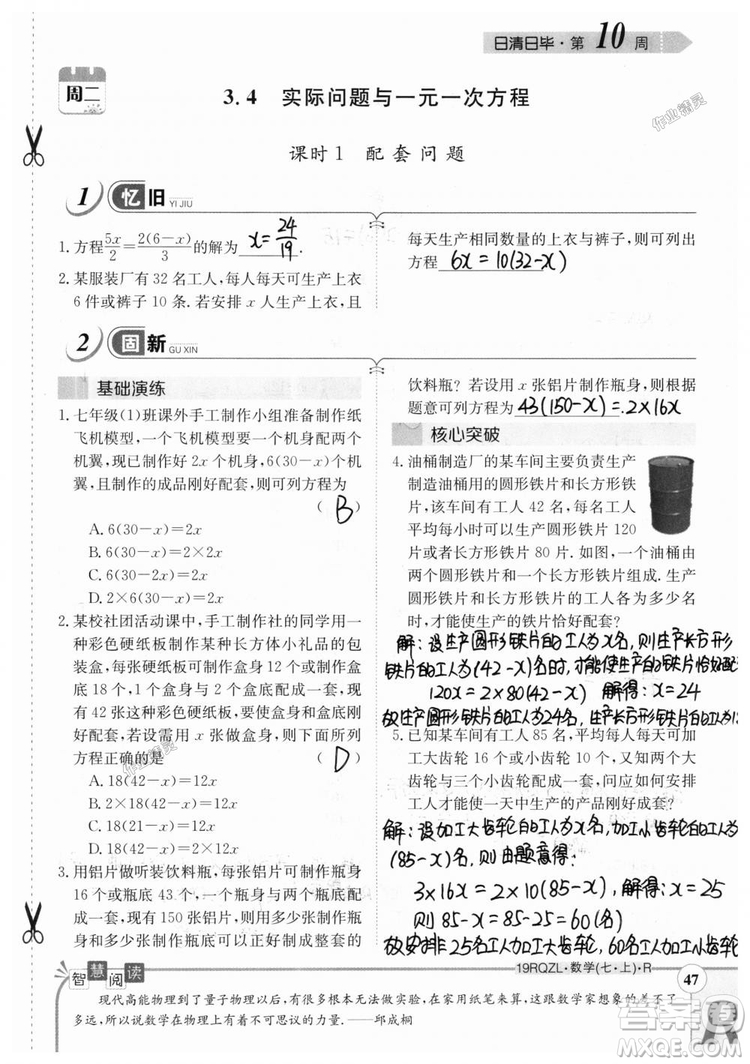 日清日毕·第10周
周二
3.4 实际问题与一元一次方程
作业精灵
课时1 配套问题
1 忆旧 YI JIU
1. 方程5x/2=2(6-x)/3的解为 x=24/19.
2. 某服装厂有 32 名工人，每人每天可生产上衣
6 件或裤子 10 条. 若安排 x 人生产上衣，且
每天生产相同数量的上衣与裤子，则可列出
方程 6x=10(32-x)
2 固新 GU XIN
基础演练
1. 七年级(1)班课外手工制作小组准备制作纸
飞机模型，一个飞机模型由一个机身和两个
机翼组成.现有 30 张硬纸板，每张硬纸板可
以做机身 6 个或机翼 2 个.设用 x 张做机
翼，且制作的成品刚好配套，则可列方程为
( B )
A. 6(30-x)=2x
B. 6(30-x)=2×2x
C. 6(30-x)=2x
D. 2×6(30-x)=2x
2. 某校社团活动课中，手工制作社的同学用一
种彩色硬纸板制作某种长方体小礼品的包
装盒，每张硬纸板可制作盒身 12 个或制作盒
底 18 个，1 个盒身与 2 个盒底配成一套，现
有 42 张这种彩色硬纸板，要使盒身和盒底刚
好配套，若设需用 x 张做盒身，则下面所列
方程正确的是 ( D )
A. 18(42-x)=12x
作业精灵
3. 用铝片做听装饮料瓶，每张铝片可制作瓶身
16 个或制作瓶底 43 个，一个瓶身与两个瓶
底配成一套. 现有 150 张铝片，用多少张制作
瓶身，用多少张制作瓶底，可以制成整套的
饮料瓶？若设用 x 张铝片制作瓶身，则根据
题意可列方程为 43(150-x)=2×16x
核心突破
4. 油桶制造厂的某车间主要负责生产
制造油桶用的圆形铁片和长方形铁
片，该车间有工人 42 名，每个工人
平均每小时可以生产圆形铁片 120
片或者长方形铁片 80 片. 如图，一个油桶由两
个圆形铁片和一个长方形铁片组成. 问安排生产
圆形铁片和长方形铁片的工人各为多少名
时，才能使生产的铁片恰好配套？
解：设生产圆形铁片的工人为x名，则生产长方形
铁片的工人为(42-x)名时，才能使生产的铁片恰好配
120x=2×80(42-x) 解得：x=24
5. 已知某车间有工人 85 名，平均每人每天可加
工大齿轮 16 个或小齿轮 10 个，又知两个大
齿轮与三个小齿轮配成一套，问应如何安排
工人才能使一天中生产的产品刚好成套？
解：设加工大齿轮的工人为x名，加工小齿轮的工人为
(85-x)名，则由题意得：
3×16x=2×10(85-x)，解得：x=25
则85-x=85-25=60
智慧阅读
现代高能物理到了量子物理以后，有很多根本无法做实验，在家用纸笔来算，这跟数学家想象的差不了
多远，所以说数学在物理上有着不可思议的力量.——邱成桐
19RQZL·数学(七·上)·R
47